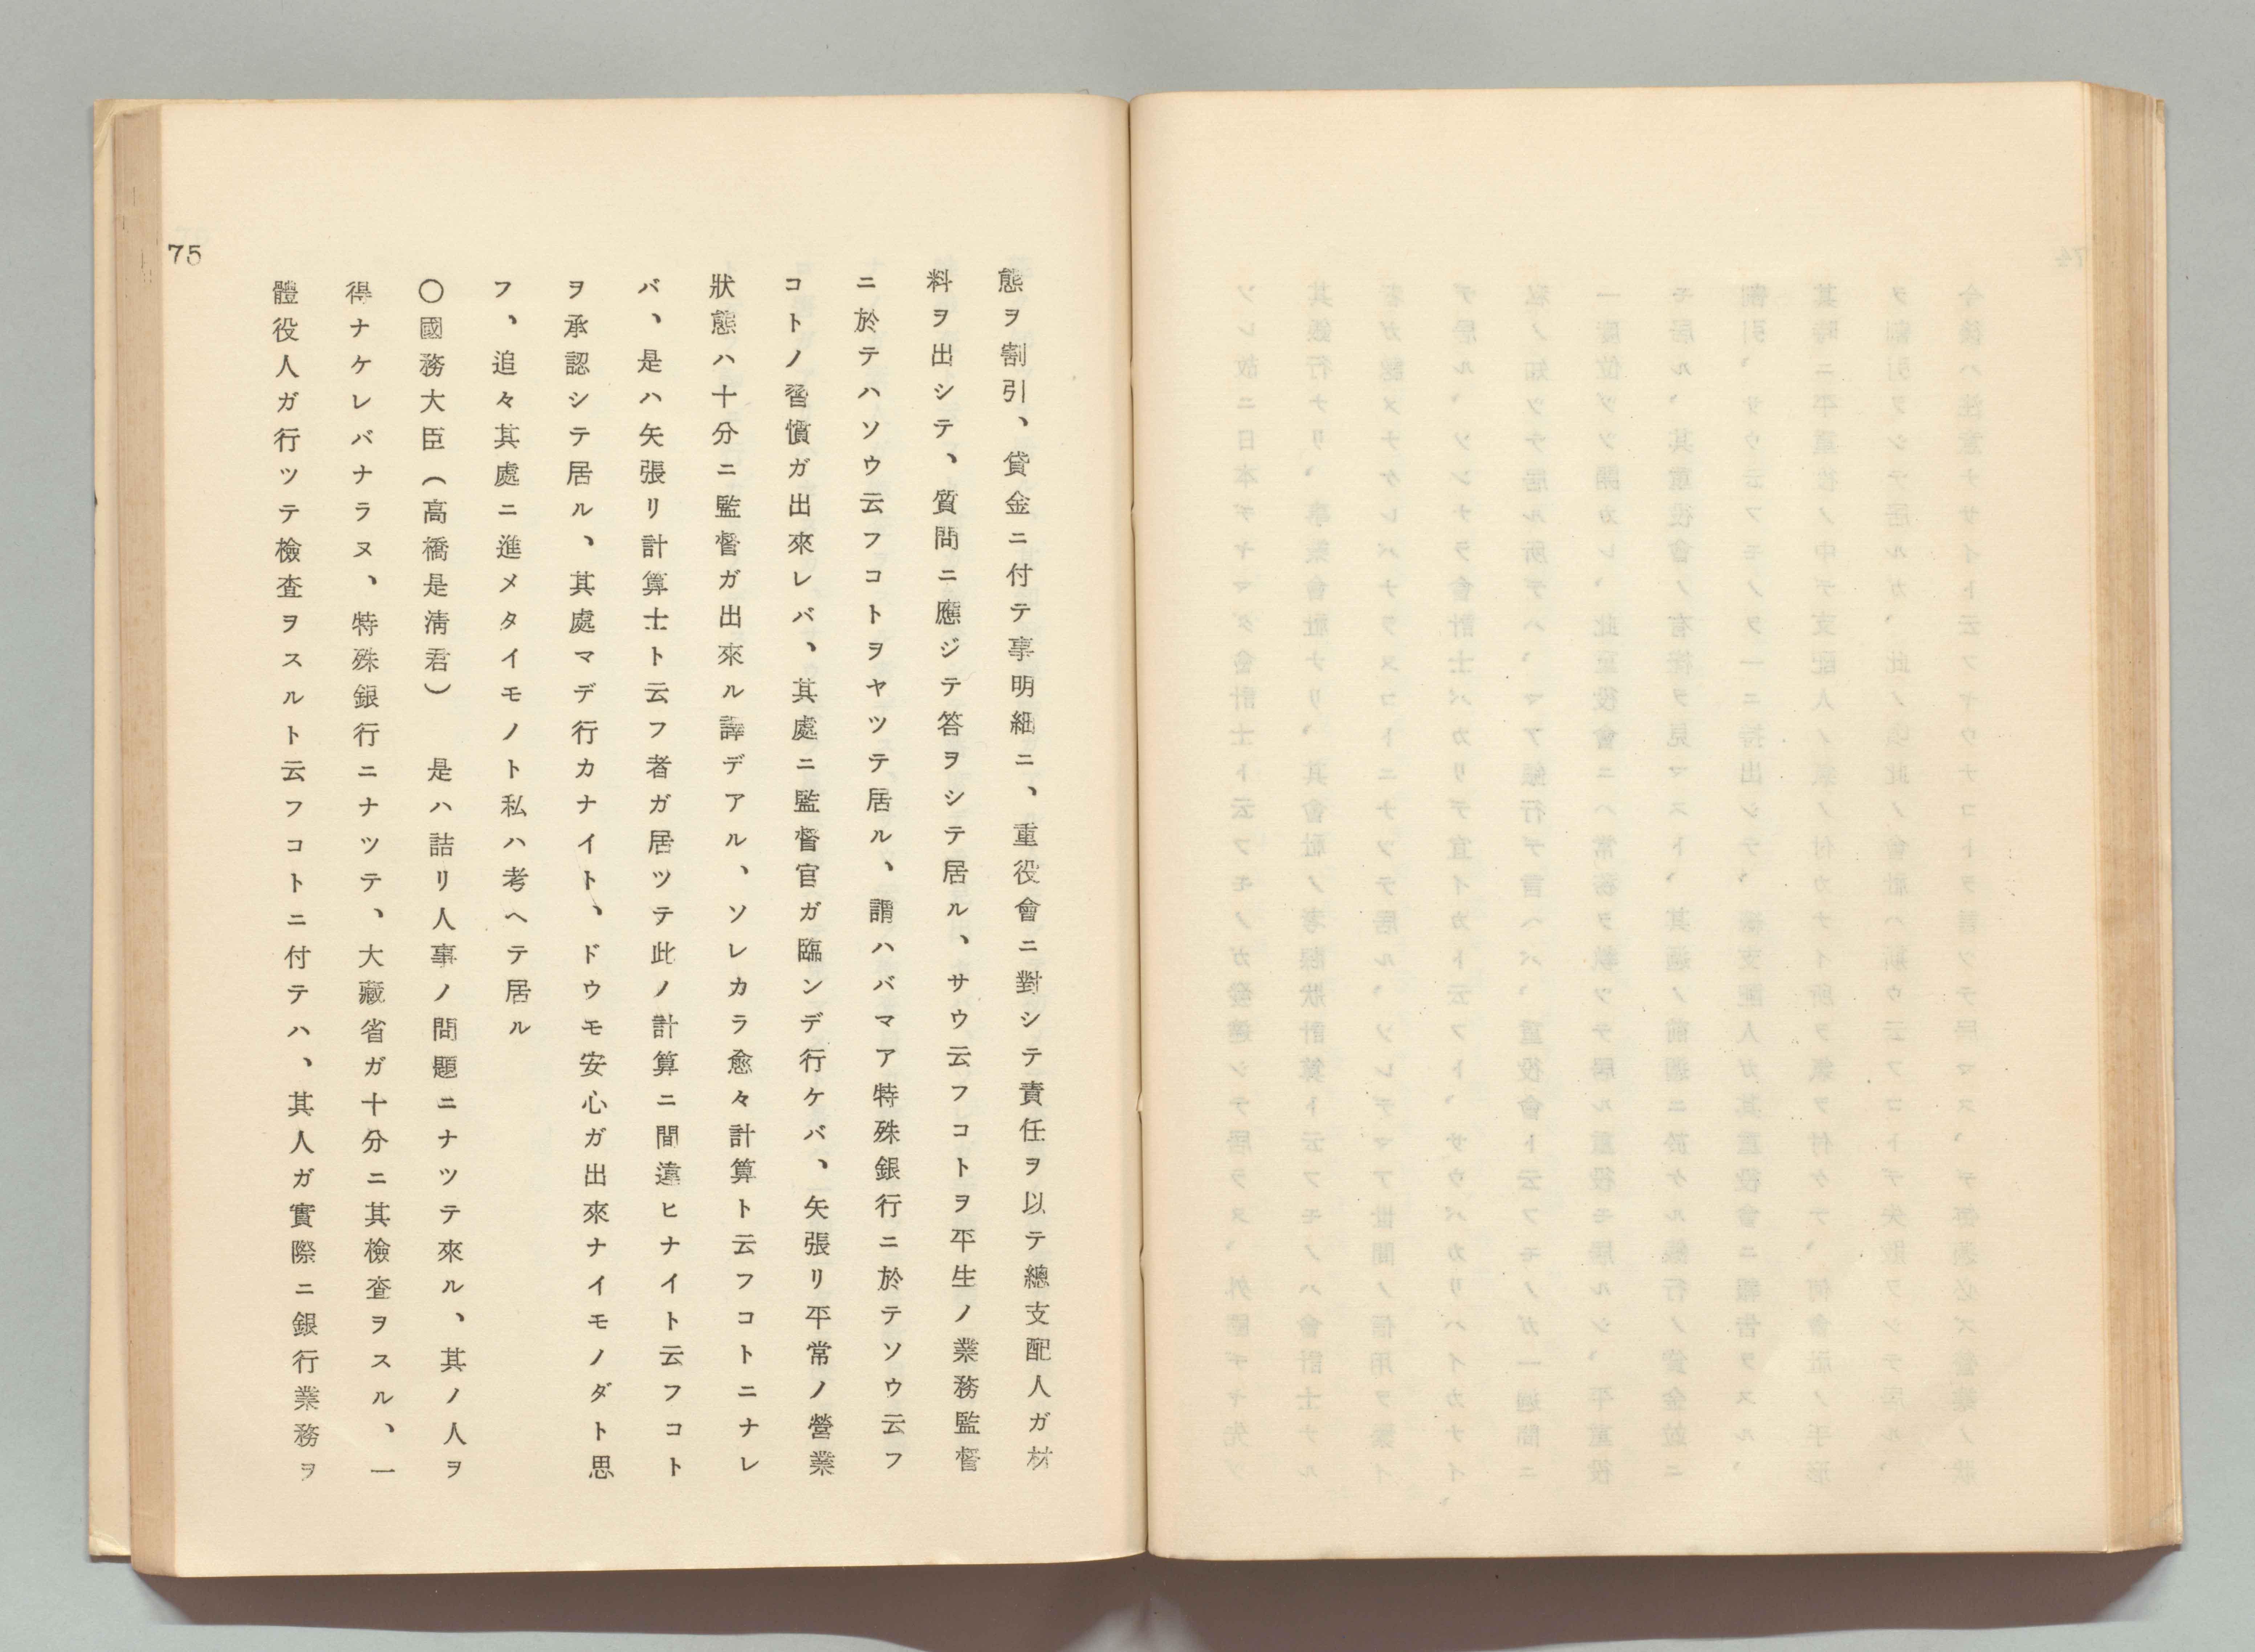 態ヲ割引、貸金ニ付テ事明細ニ、重役會ニ對シテ責任ヲ以テ總支配人ガ材
料ヲ出シテ、質問ニ應ジテ答ヲシテ居ル、サウ云フコトヲ平生ノ業務監督
ニ於テハソウ云フコトヲヤツテ居ル、謂ハバマア特殊銀行ニ於テソウ云フ
コトノ習慣ガ出來レバ、其處ニ監督官ガ臨ンデ行ケバ、矢張リ平常ノ營業
狀態ハ十分ニ監督ガ出來ル譯デアル、ソレカラ愈々計算ト云フコトニナレ
バ、是ハ矢張リ計算士ト云フ者ガ居ツテ此ノ計算ニ間違ヒナイト云フコト
ヲ承認シテ居ル、其處マデ行カナイト、ドウモ安心ガ出來ナイモノダト思
フ、追々其處ニ進メタイモノト私ハ考ヘテ居ル
〇國務大臣(高橋是淸君)　是ハ詰リ人事ノ問題ニナツテ來ル、其ノ人ヲ
得ナケレバナラヌ、特殊銀行ニナツテ、大藏省ガ十分ニ其檢査ヲスル、一
體役人ガ行ツテ檢査ヲスルト云フコトニ付テハ、其人ガ實際ニ銀行業務ヲ
75